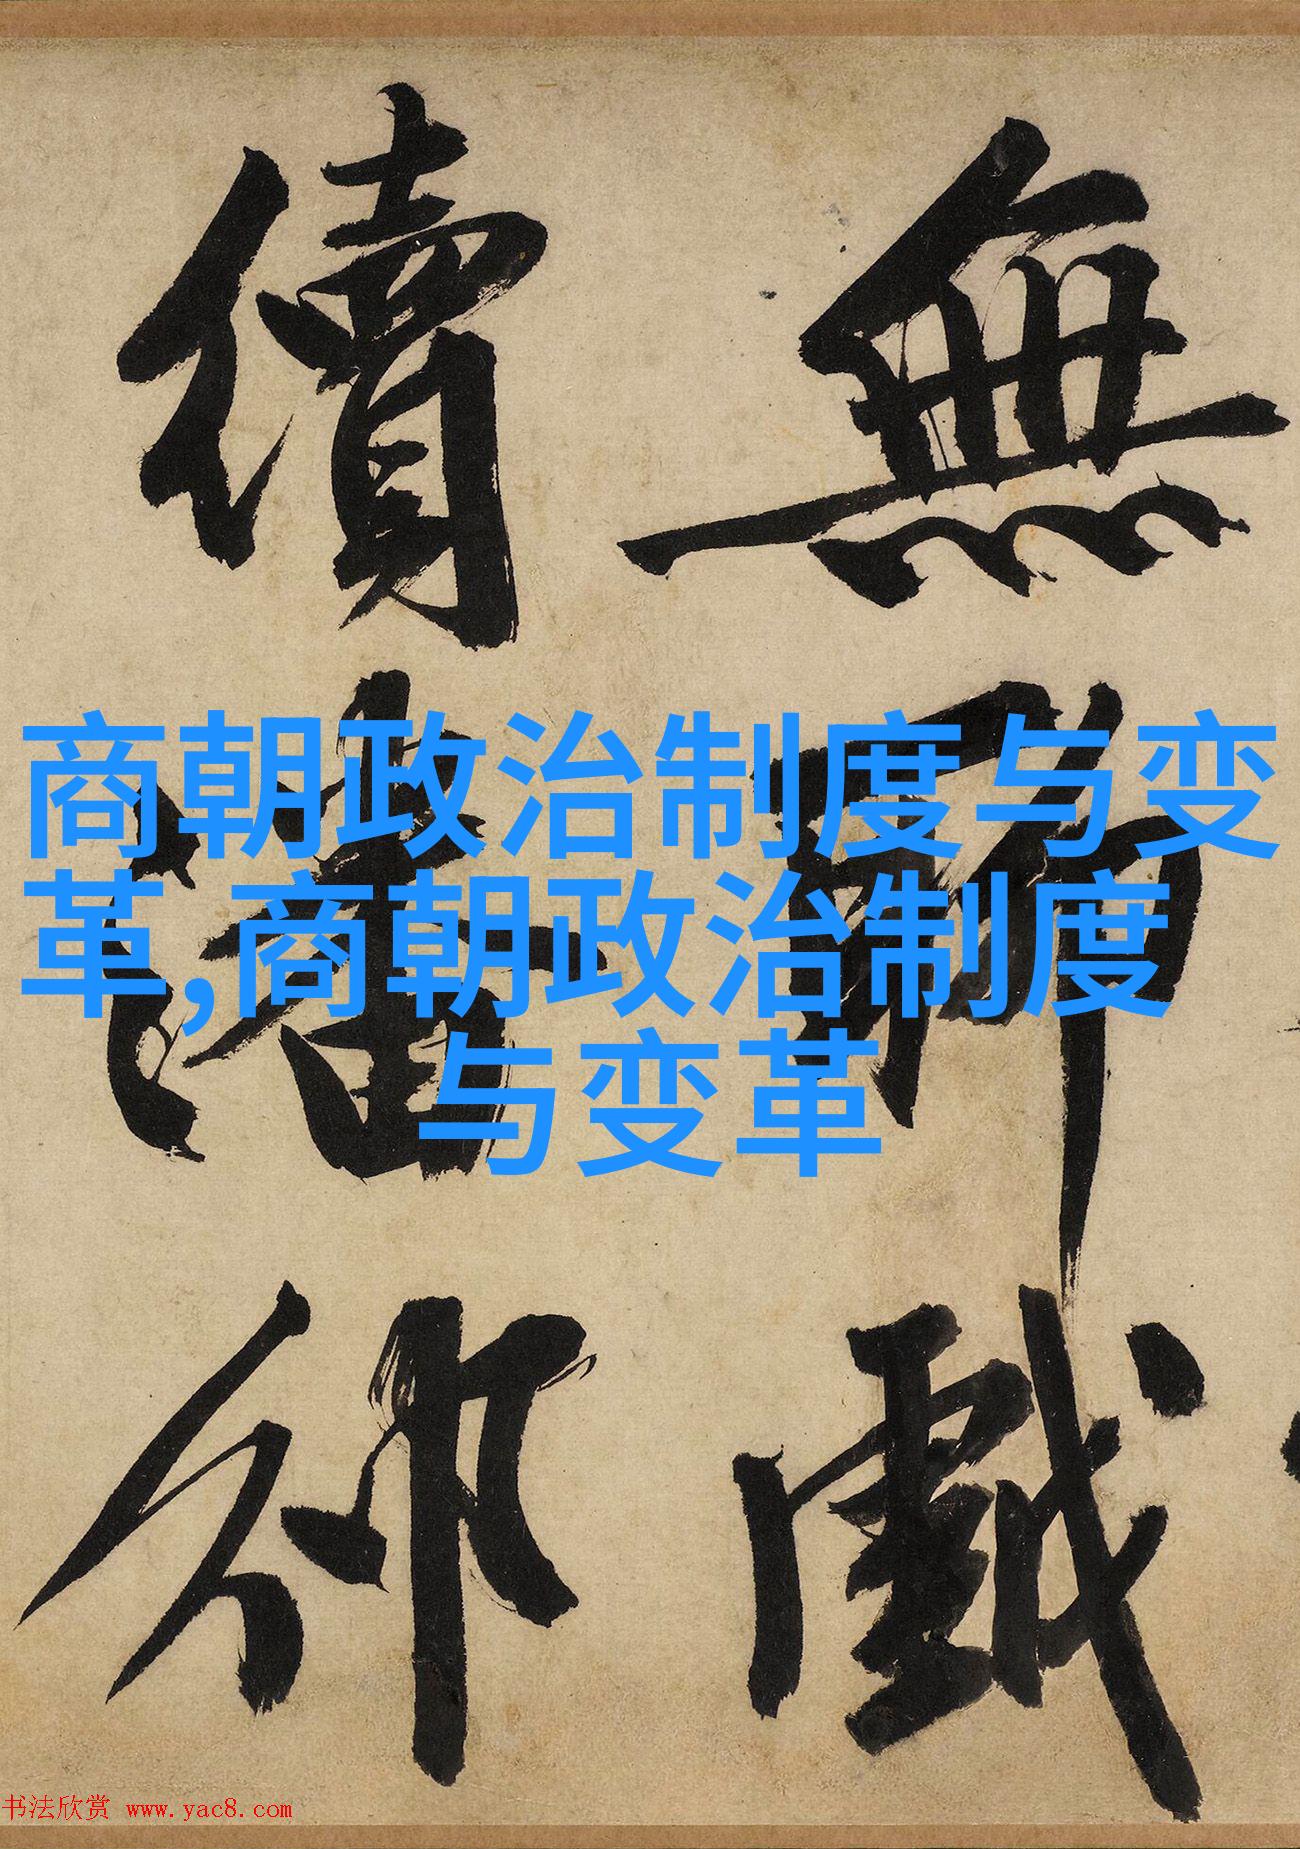 無所戲
續潘邠
商朝政治制度与变
革,商朝政治制度
与变革
书法欣赏 www.yac8.com